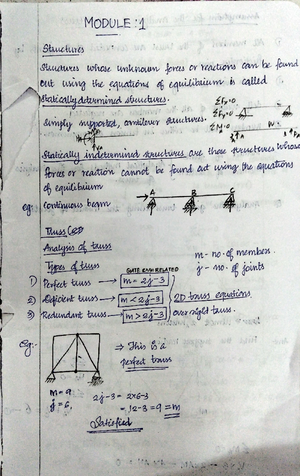 MODULE : 1
Structures
Structures whose unknown forces or reactions can be found
out using the equations of equilibrium is called
statically determined structures.
ΣFx=0
ΣFy=0
ΣM=0
simply supported, cantilever structures.
Statically indetermined structures are those structures whose
forces or reaction cannot be found out using the equations
of equilibrium
eg: continuous beam
A B C
Truss
Analysis of truss
Types of truss
GATE EXAM RELATED
m - no. of members.
j - no. of joints
1) Perfect truss → m = 2j-3
2) Deficient truss → m < 2j-3
3) Redundant truss → m > 2j-3
2D truss equations
over rigid truss.
eg:-
⇒ This is a
perfect truss
m = 9
j = 6,
2j-3 = 2x6-3
= 12-3 = 9 = m
Satisfied